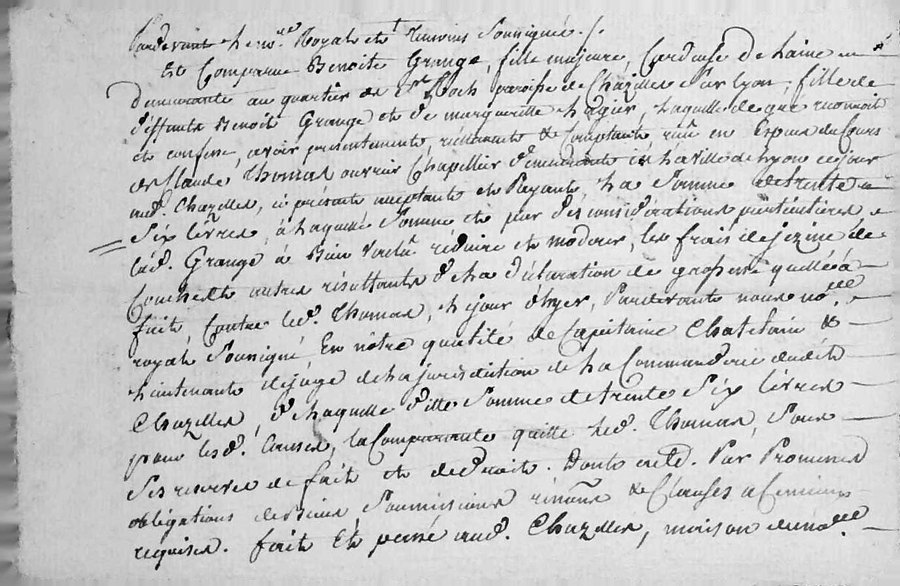 Pardevant le no.re Royal et t Temoins Soussignés /.
Est Comparue Benoite Grange, fille majeure, Cardeuse de Laine
demeurante au quartier de St Roch paroisse de Chazelles Sur Lyon, fille de
deffunts Benoit Grange et de marguerite Lagier, Laquelle de gré reconnoit
et confesse, avoir présentement, réellement & Comptant reçu en Espèces du Cours
de Claude Thomas ouvrier Chapellier demeurant en La ville de Lyon ce jour
aud. Chazelles, ici présent acceptant et Payant, La Somme de trente
Six Livres, à Laquelle Somme et par des considérations
lad. Grange à Bien voulu réduire et moderer, les frais de jezine de
Couche & autres résultants de La déclaration de grossesse quelle à
fait, Contre led. Thomas, Le jour d'hyer, Pardevant nous no.re
royal Soussigné En nôtre qualité de Capitaine Chatelain &
Lieutenant de juge de La jurisdiction de La Commanderie dudit
Chazelles, de Laquelle ditte Somme de trente Six Livres
pour lesd. Causes, la Comparante quitte led. Thomas, Sous
Ses reserves de fait et de droit. Dont acte. Par Promesses
obligations de biens Soumissions renons & Clauses
requises. fait Et passé aud. Chazelles, maison de no.re